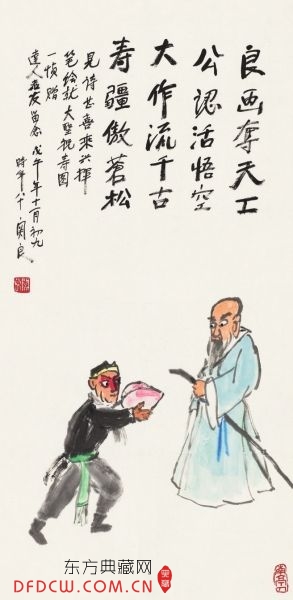 良画奪天工
公認活悟空
大作流千古
寿疆傲蒼松
見诗甚喜乘兴揮
笔绘就大聖祝寿図
一幀贈
達人 留念 戊午年十一月初九
時年八十 関良
东方典藏网
DFDCW.COM.CN